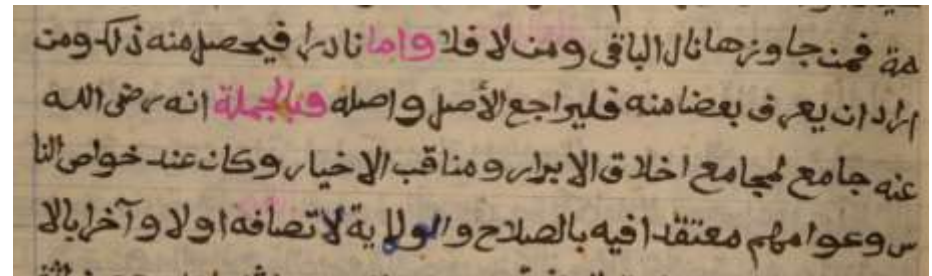 مة فمن جاوزها نال الباقى ومن لا فلا واما نادرا فيحصل منه ذلك ومن
اراد ان يعرف بعضا منه فليراجع الأصل واصله وبالجملة انه رضى الله
عنه جامع لمجامع اخلاق الابرار ومناقب الاخيار وكان عند خواص النا
س وعوامهم معتقدا فيه بالصلاح والولاية لاتصافه اولا وآخرا بالا